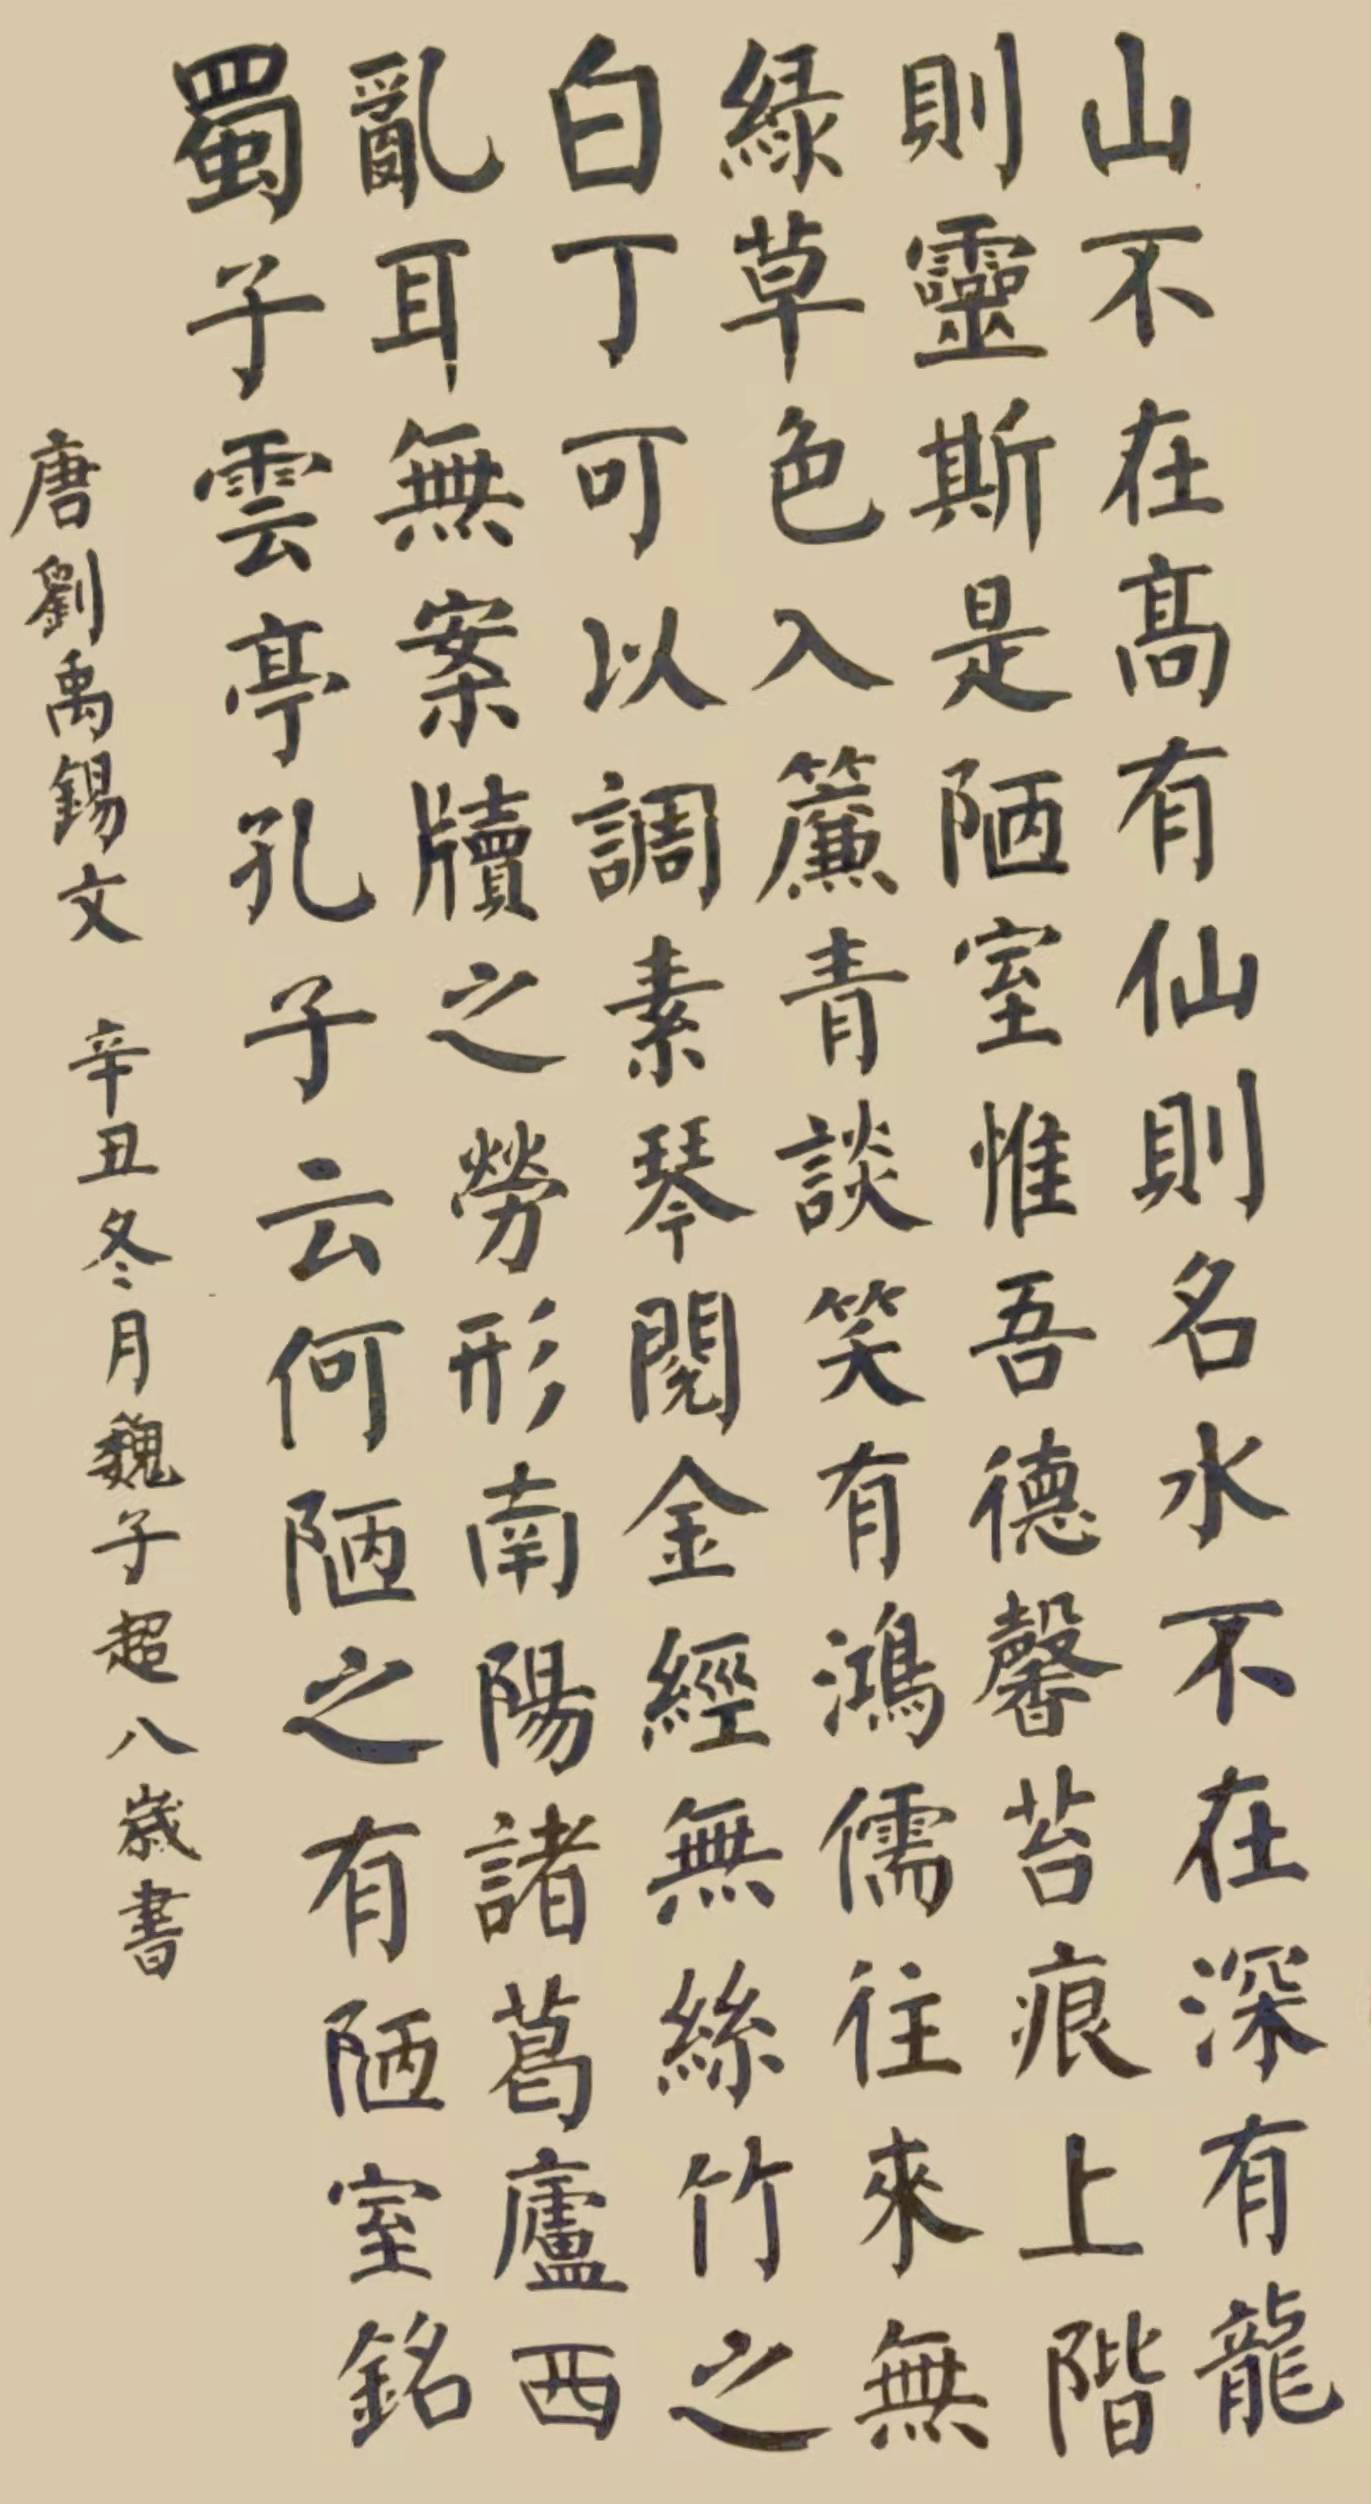 山不在高有仙則名水不在深有龍
則靈斯是陋室惟吾德馨苔痕上階
綠草色入簾青談笑有鴻儒往來無
白丁可以調素琴閱金經無絲竹之
亂耳無案牘之勞形南陽諸葛廬西
蜀子雲亭孔子云何陋之有陋室銘
唐劉禹錫文 辛丑冬月魏子超八歲書